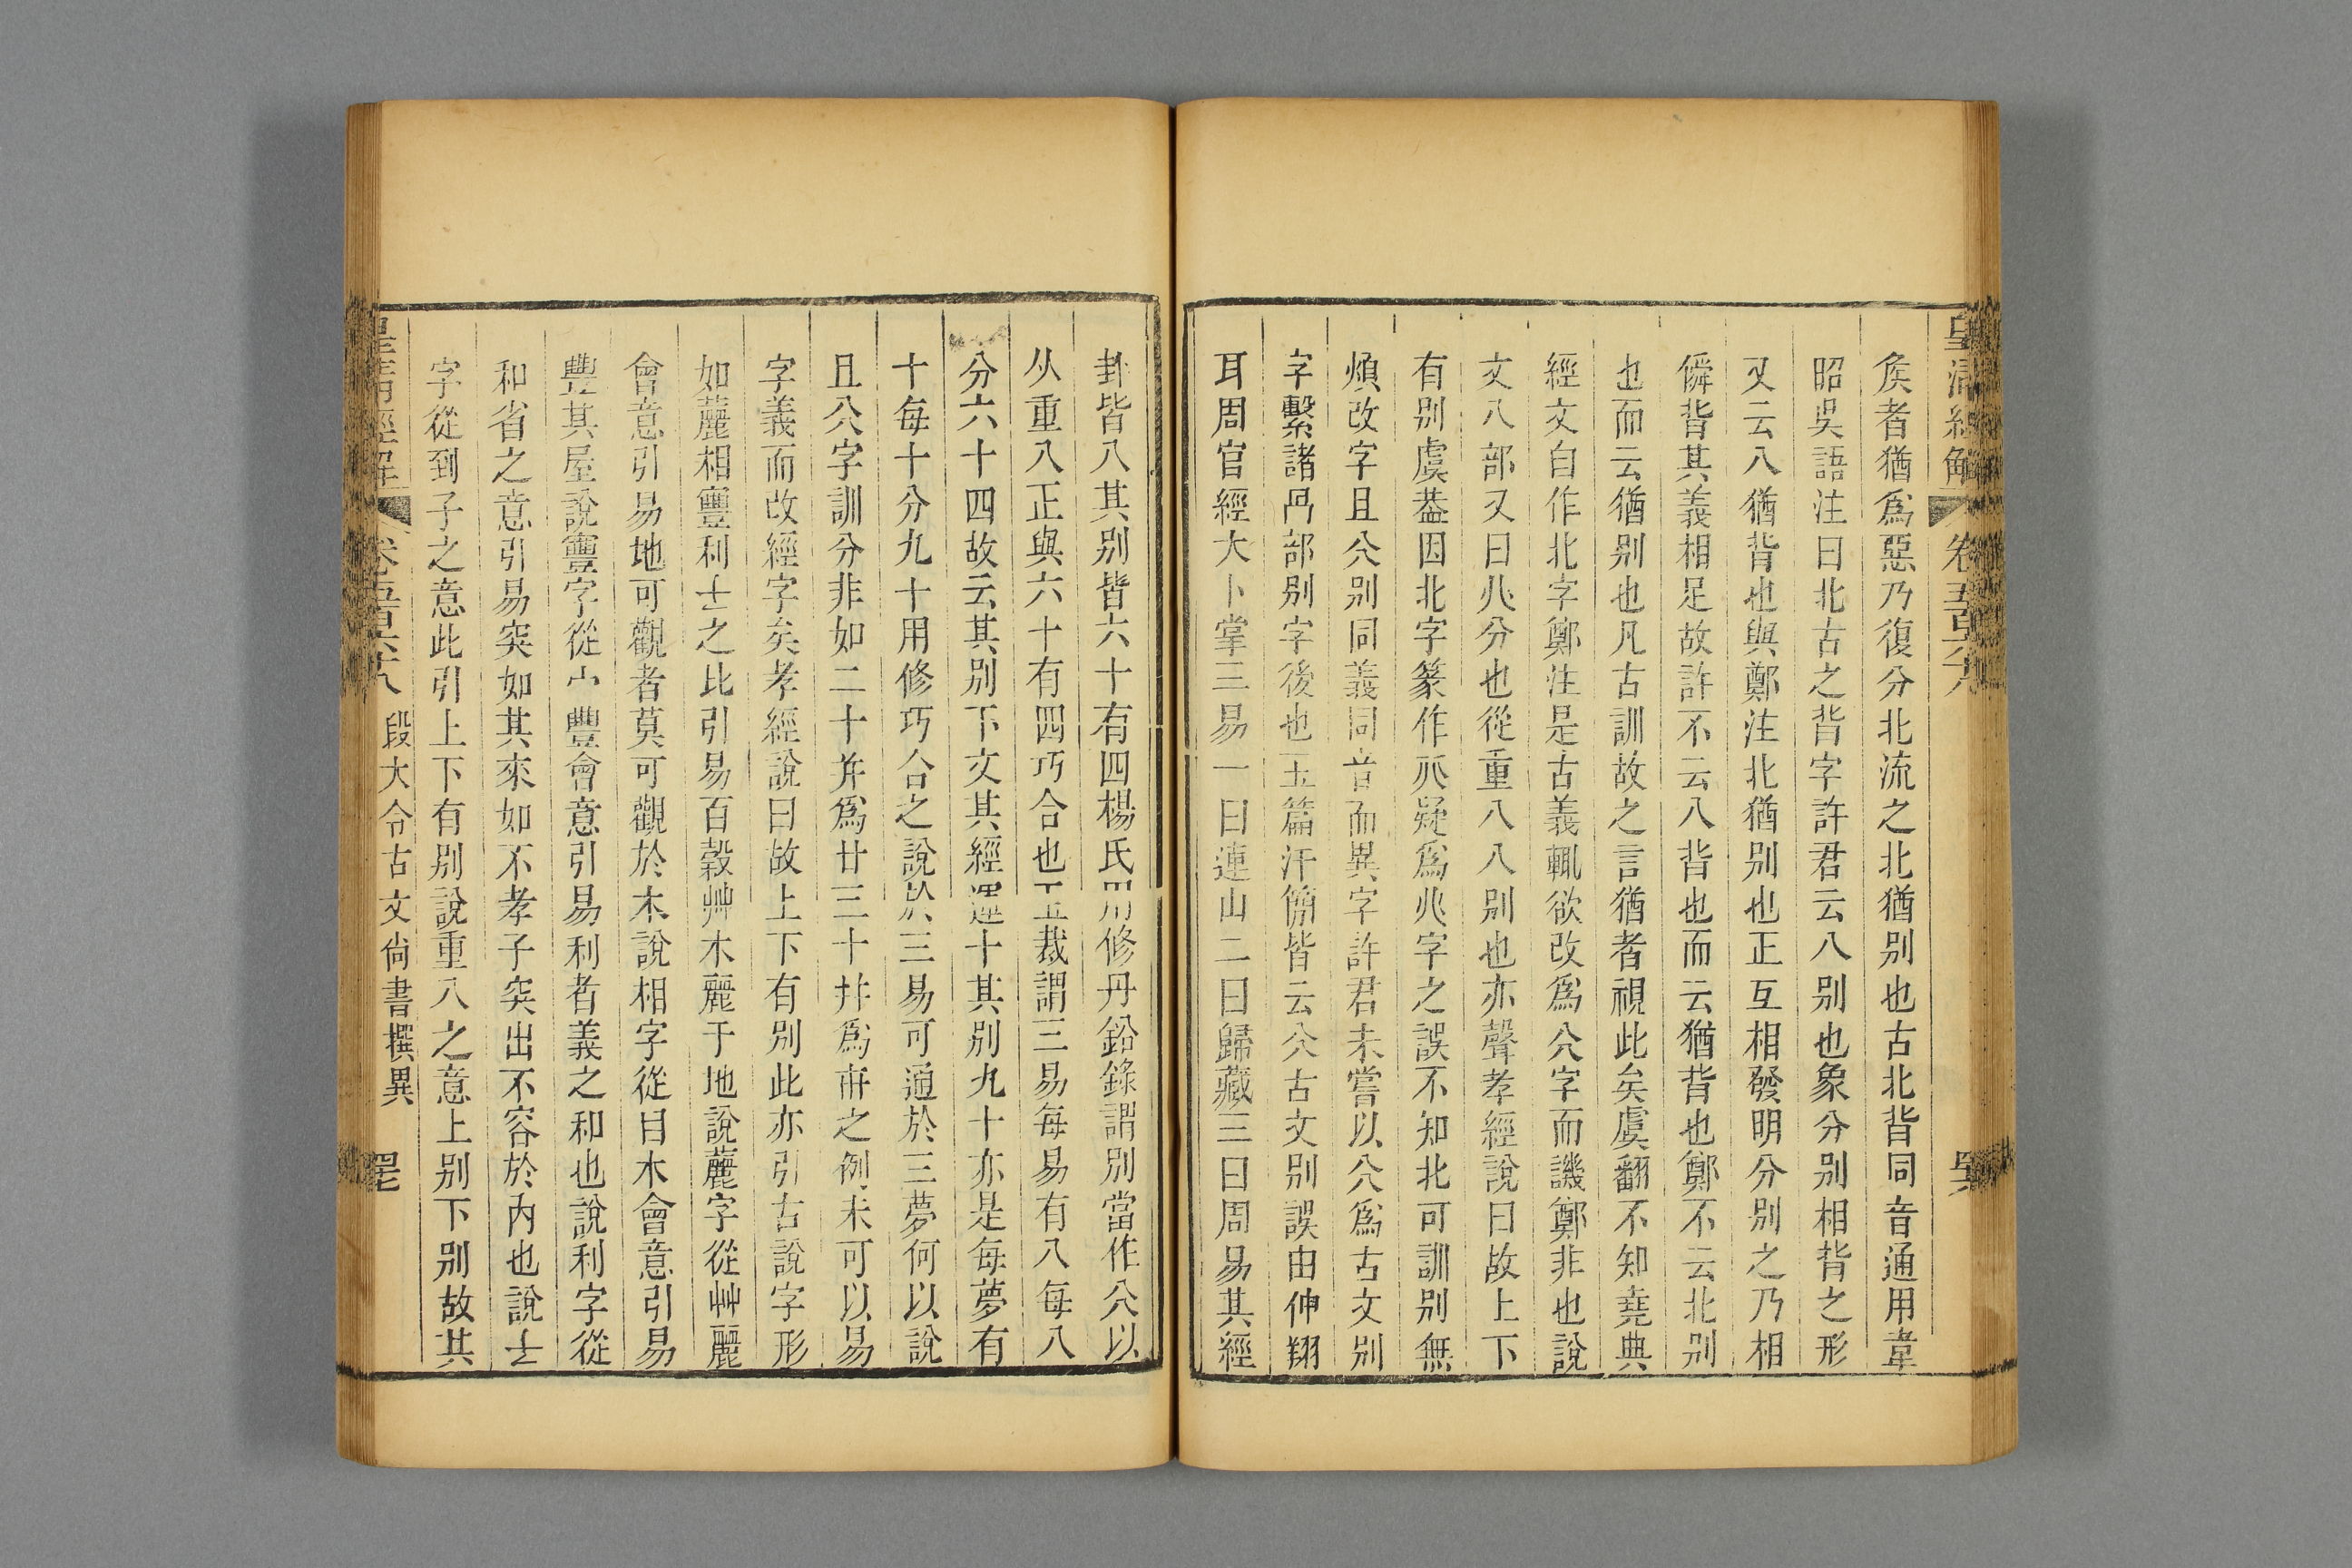 皇清經解 卷五百六十八 
矦者猶爲惡乃復分北流之北猶别也古北背同音通用韋
昭吳語注曰北古之背字許君云八别也象分别相背之形
又云八猶背也與鄭注北猶别也正互相發明分别之乃相
僢背其義相足故許不云八背也而云猶背也鄭不云北别
也而云猶别也凡古訓故之言猶者視此矣虞翻不知堯典
經文自作北字鄭注是古義輒欲改爲㕣字而譏鄭非也說
文八部又曰㕣分也從重八八别也亦聲孝經說曰故上下
有别虞葢因北字篆作𠁥疑爲㕣字之誤不知北可訓别無
煩改字且㕣别同義同音而異字許君未嘗以㕣爲古文别
字繫諸冎部别字後也玉篇汗簡皆云㕣古文别誤由仲翔
耳周官經大卜掌三易一曰連山二曰歸藏三曰周易其經
卦皆八其别皆六十有四楊氏用修丹鉛錄謂别當作㕣以
从重八正與六十有四巧合也玉裁謂三易每易有八每八
分六十四故云其别下文其經運十其别九十亦是每夢有
十每十分九十用修巧合之說於三易可通於三夢何以說
且八字訓分非如二十并爲廿三十并爲卅之例未可以易
字義而改經字矣孝經說曰故上下有别此亦引古說字形
如麗相豐利士之比引易百穀艸木麗于地說麗字從艸麗
會意引易地可觀者莫可觀於木說相字從目木會意引易
豐其屋說寷字從宀豐會意引易利者義之和也說利字從
和省之意引易突如其來如不孝子突出不容於內也說𠫓
字從到子之意此引上下有别說重八之意上别下别故其
皇清經解 卷五百六十八 段大令古文尚書撰異